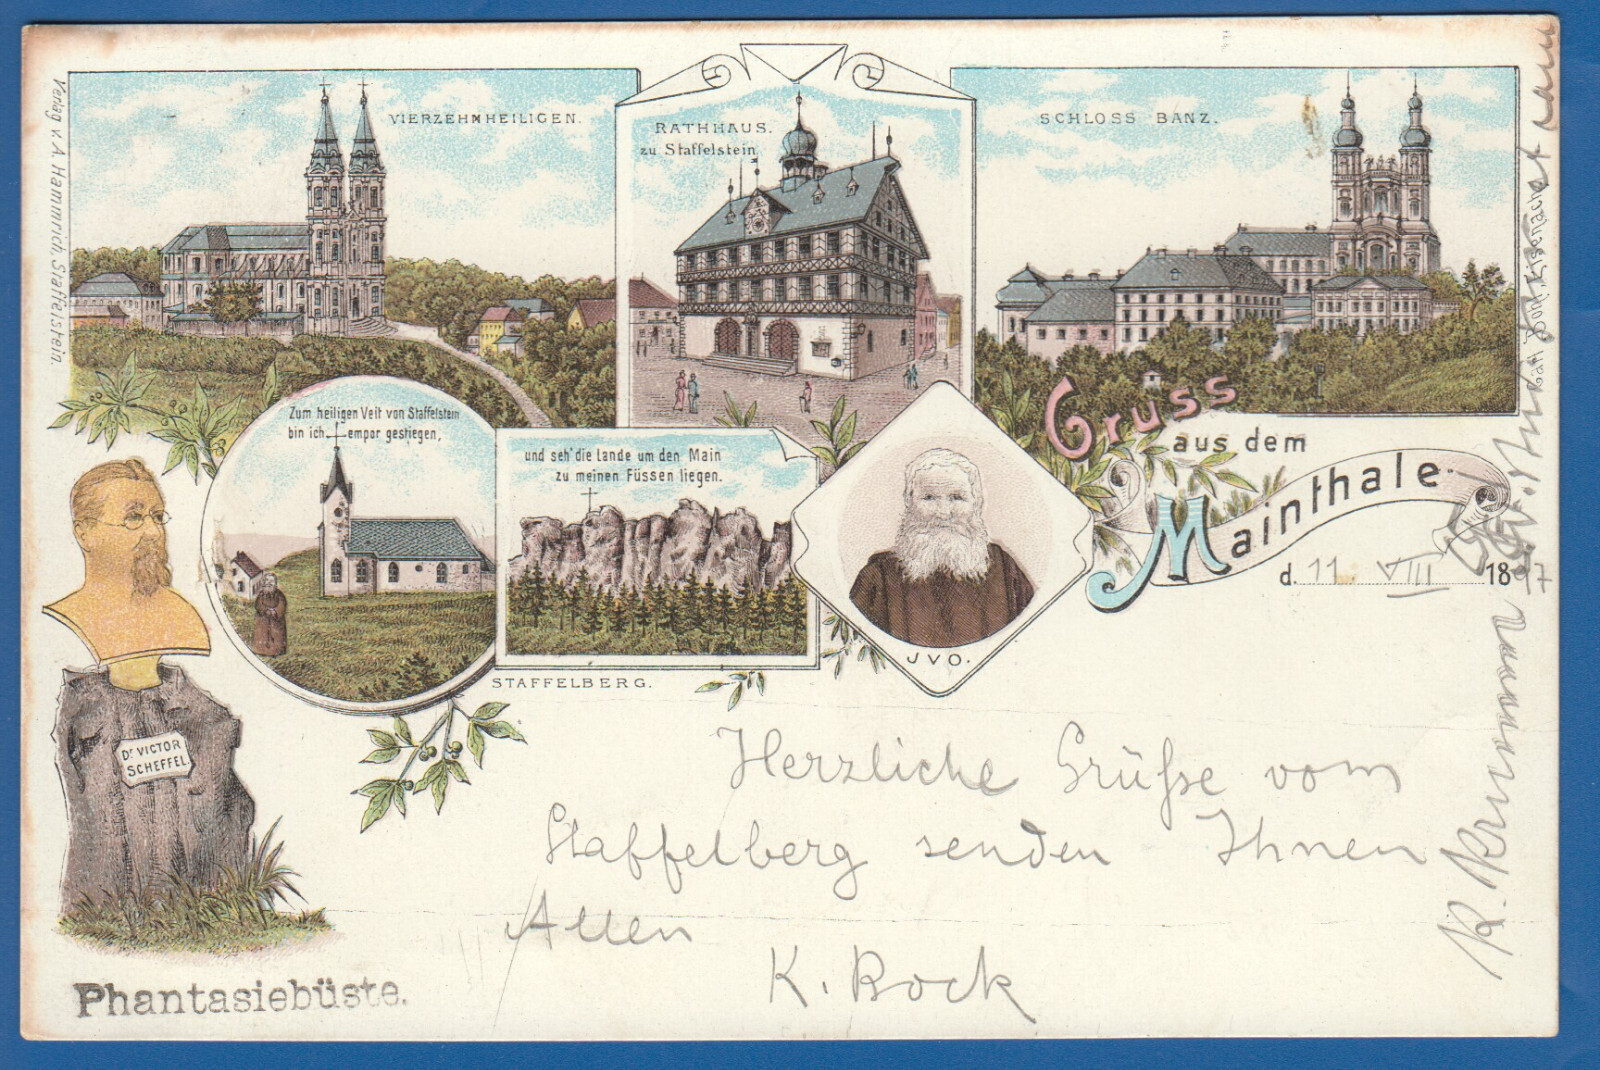 VIERZEHNHEILIGEN.
RATHHAUS.
zu Staffelstein
SCHLOSS BANZ.
Verlag v. A. Hammrich, Staffelstein.
Gruss
aus dem
Mainthale
d. 11. VIII 1897
Zum heiligen Veit von Staffelstein
bin ich empor gestiegen,
und seh' die Lande um den Main
zu meinen Füssen liegen.
STAFFELBERG.
JVO.
Dr VICTOR
SCHEFFEL.
Phantasiebüste.
Herzliche Grüße vom
Staffelberg senden Ihnen
Allen
K. Bock